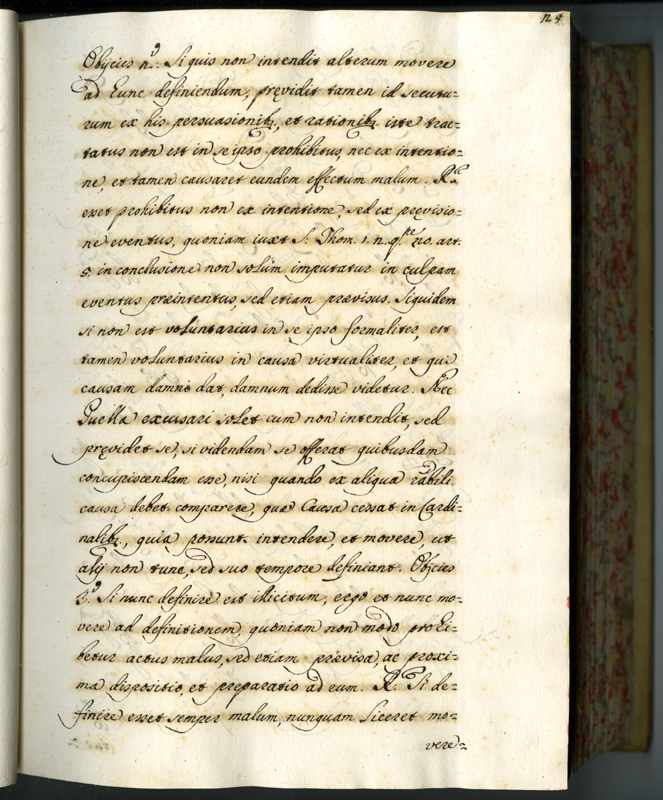 125
Obijcies 2.º Si quis non intendit alterum movere
ad tunc definiendum, prævidit tamen id secutu-
rum ex his persuasionib9, et rationib9 iste trac-
tatus non est in se ipso prohibitus, nec ex intentio-
ne, et tamen causaret eundem effectum malum. R.te
esset prohibitus non ex intentione, sed ex prævisio-
ne eventus, quoniam iuxt S. Thom. 1. 2. q. 20. art.
5. in conclusione non solùm imputatur in culpam
eventus præintentus, sed etiam prævisus. Siquidem
si non est voluntarius in se ipso formaliter, est
tamen voluntarius in causa virtualiter, et qui
causam damni dat, damnum dedisse videtur. Nec
Puella excusari solet cum non intendit, sed
prævidet se, si videndam se offerat quibusdam
concupiscendam esse, nisi quando ex aliqua rãbili
causa debet comparere, quæ Causa cessat in Cardi-
nalib9, quia possunt intendere, et movere, ut
alij non tunc, sed suo tempore definiant. Obijcies
3.º Si nunc definire est illicitum, ergo et nunc mo-
vere ad definitionem, quoniam non modo prohi-
betur actus malus, sed etiam prævisa, ac proxi-
ma dispositio, et preparatio ad eum. R. Si de-
finire esset semper malum, nunquam liceret mo-
vere-